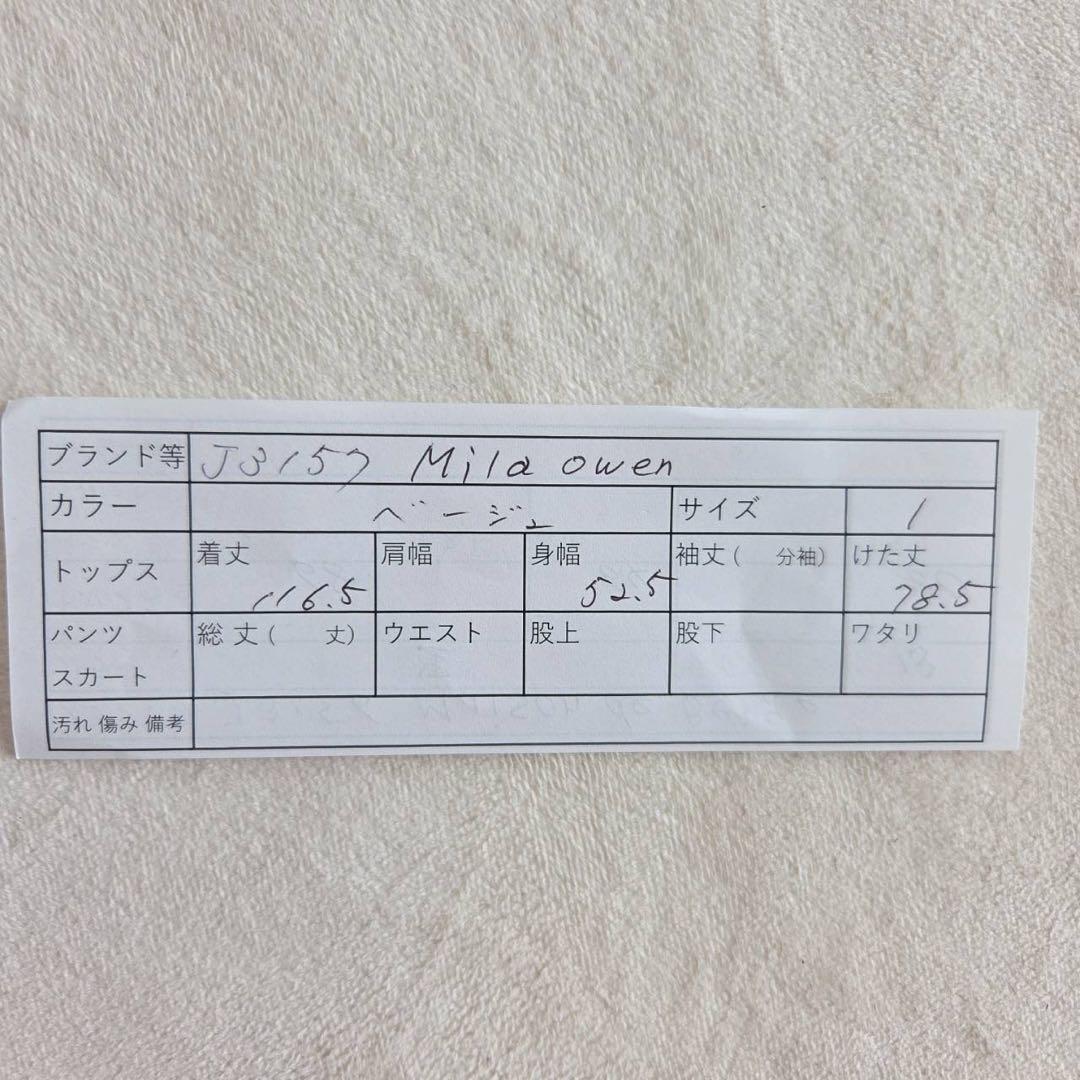 ブランド等 J3157 Mila owen
カラー ベージュ サイズ 1
トップス 着丈 116.5 肩幅 身幅 52.5 袖丈( 分袖) けた丈 78.5
パンツ スカート 総丈( 丈) ウエスト 股上 股下 ワタリ
汚れ 傷み 備考